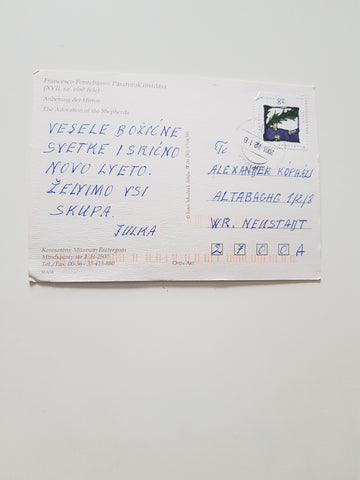 Francesco Fontebasso: Pásztorok imádása
(XVII. sz. első fele)
Anbetung der Hirten
The Adoration of the Shepherds
VESELE BOŽIĆNE
SVETKE I SRIĆNO
NOVO LYETO.
ŽELYIMO VSI
SKUPA.
JULKA
Keresztény Múzeum Esztergom
Mindszenty tér 2. H-2500
Tel./Fax: 00-36 - 33-413-880
Tc
ALEXANDER KÖPHAZI
ALTABACHG 1/2/8
WR. NEUSTADT
2700 A